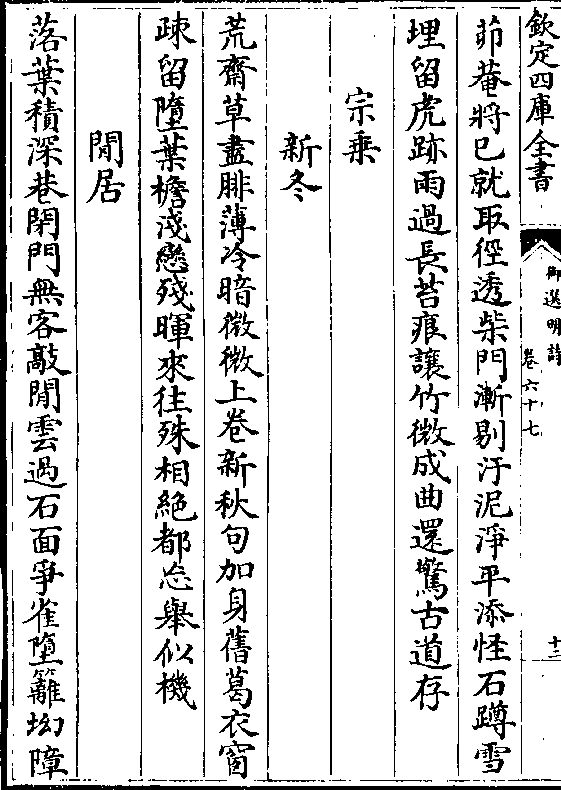 欽定四庫全書
御選明詩
卷六十七
十二
茆菴將已就取徑透柴門漸剔汙泥淨平添怪石蹲雪
埋留虎跡雨過長苔痕讓竹微成曲還驚古道存
宗乗
新冬
荒齋草盡腓薄冷暗微微上卷新秋句加身舊葛衣窗
疎留墮葉檐淺戀殘暉來往殊相絶都忘舉似機
閒居
落葉積深巷閉門無客敲閒雲過石面爭雀墮籬坳障